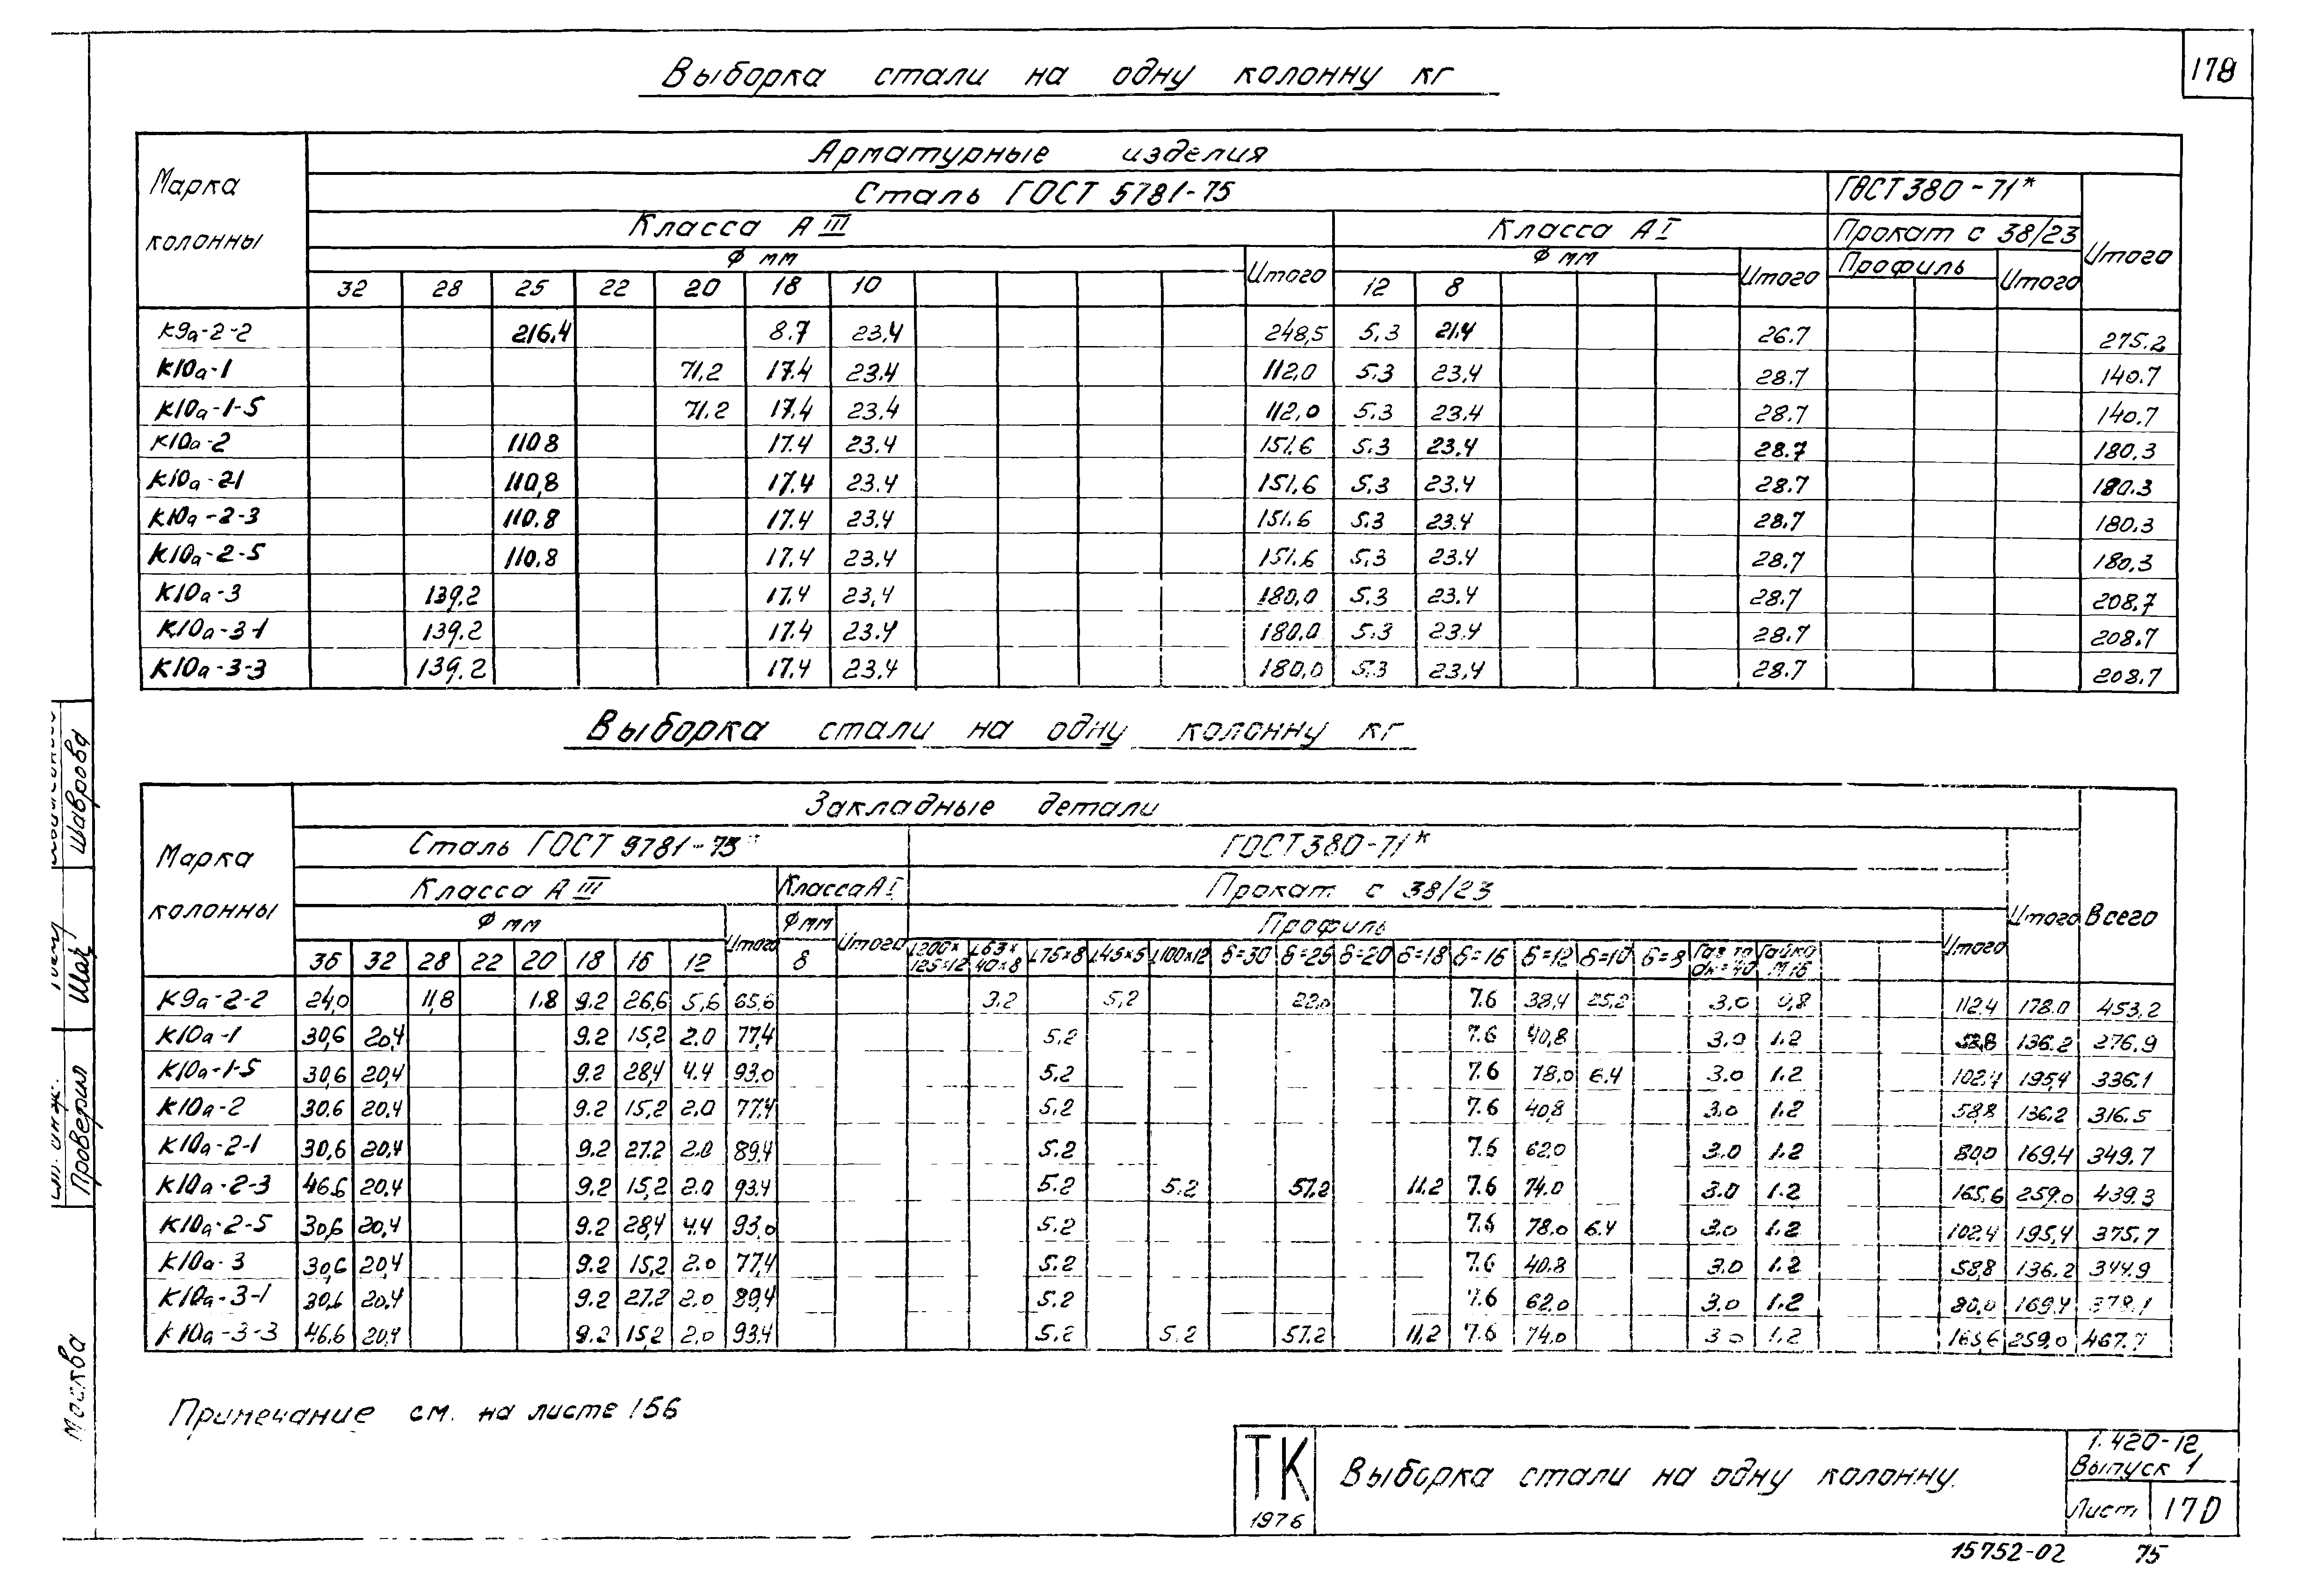 178
Выборка стали на одну колонну кг
Марка колонны
Арматурные изделия
Сталь ГОСТ 5781-75
ГОСТ 380-71*
Итого
Класса А III
Класса А I
Прокат с 38/23
Ф мм
Итого
Ф мм
Итого
Профиль
Итого
32 28 25 22 20 18 10 12 8
К9а-2-2 216.4 8.7 23.4 248,5 5,3 21.4 26.7 275.2
К10а-1 71,2 17.4 23.4 112,0 5.3 23.4 28.7 140.7
К10а-1-5 71.2 17.4 23.4 112,0 5.3 23.4 28.7 140.7
К10а-2 110 8 17.4 23.4 151.6 5.3 23.4 28.7 180.3
К10а-21 110,8 17.4 23.4 151.6 5.3 23.4 28.7 180.3
К10а-2-3 110.8 17.4 23.4 151.6 5.3 23.4 28.7 180.3
К10а-2-5 110.8 17.4 23.4 151.6 5,3 23.4 28.7 180.3
К10а-3 139.2 17.4 23,4 180,0 5.3 23.4 28.7 208.7
К10а-3-1 139.2 17.4 23.4 180.0 5.3 23.4 28.7 208.7
К10а-3-3 139.2 17.4 23.4 180,0 5.3 23.4 28.7 208.7
Выборка стали на одну колонну кг
Марка колонны
Закладные детали
Всего
Сталь ГОСТ 5781-75*
ГОСТ 380-71*
Итого
Класса А III
Класса А I
Прокат с 38/23
Ф мм
Итого
Ф мм
Итого
Профиль
Итого
36 32 28 22 20 18 16 12 8 L200×125×12 L63×40×8 L75×8 L45×5 L100×12 δ=30 δ=25 δ=20 δ=18 δ=16 δ=12 δ=10 δ=8 dн=40 Гайка М16
К9а-2-2 24,0 11,8 1.8 9.2 26,6 5,6 65,6 3.2 5,2 22,0 7.6 38,4 25,2 3.0 0,8 112.4 178.0 453.2
К10а-1 30,6 20,4 9.2 15,2 2.0 77,4 5.2 7.6 40,8 3.0 1.2 58,8 136.2 276.9
К10а-1-5 30,6 20,4 9.2 28,4 4.4 93,0 5.2 7.6 78,0 6.4 3.0 1.2 102.4 195,4 336.1
К10а-2 30.6 20.4 9.2 15,2 2.0 77.4 5.2 7.6 40,8 3.0 1.2 58,8 136.2 316.5
К10а-2-1 30,6 20,4 9.2 27.2 2.0 89,4 5.2 7.6 62,0 3.0 1.2 80,0 169.4 349.7
К10а-2-3 46.6 20.4 9.2 15,2 2.0 93.4 5.2 5.2 57.2 11.2 7.6 74.0 3.0 1.2 165.6 259.0 439.3
К10а-2-5 30,6 20,4 9.2 28,4 4.4 93,0 5.2 7.6 78.0 6.4 3.0 1.2 102.4 195,4 375.7
К10а-3 30,6 20,4 9.2 15,2 2.0 77,4 5.2 7.6 40.8 3.0 1.2 58,8 136.2 344.9
К10а-3-1 30,6 20,4 9.2 27.2 2.0 89,4 5.2 7.6 62.0 3.0 1.2 80,0 169.4 378.1
К10а-3-3 46.6 20,4 9.2 15,2 2.0 93.4 5.2 5.2 57.2 11.2 7.6 74.0 3.0 1.2 165,6 259,0 467.7
Примечание см. на листе 156
ТК
1976
Выборка стали на одну колонну.
1.420-12
Выпуск 1
Лист 170
15752-02 75
Шаврова
Проверил
Москва